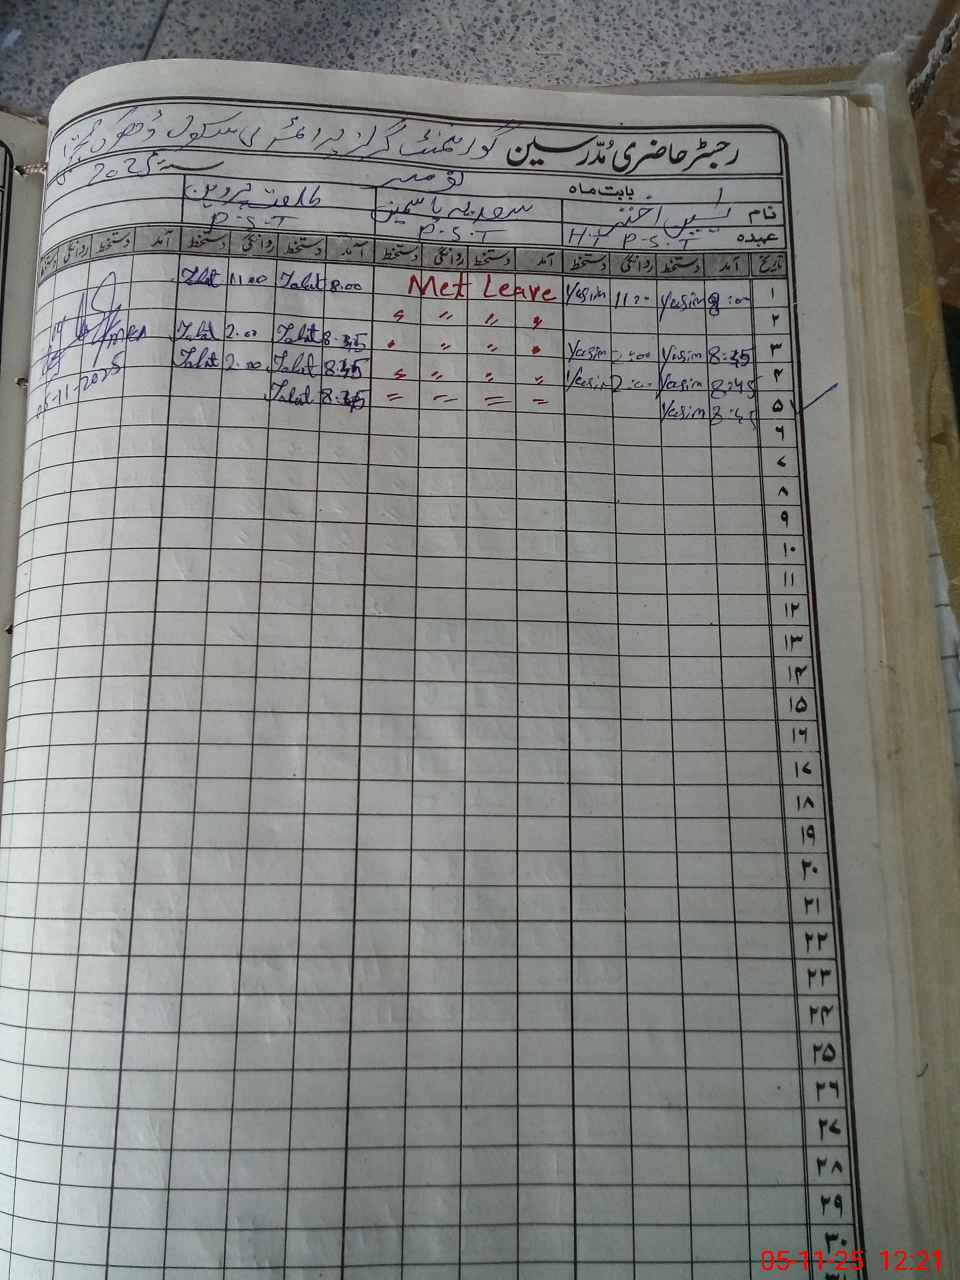 رجسٹر حاضری مُدّرسین گورنمنٹ گرلز پرائمری سکول
بابت ماہ نومبر سنہ 2025
نام یاسمین اختر سعدیہ یاسمین طلعت پروین
عہدہ H.T P.S.T P.S.T P.S.T
تاریخ آمد دستخط روانگی دستخط آمد دستخط روانگی دستخط آمد دستخط روانگی دستخط آمد دستخط روانگی دستخط
۱ 8:00 Yasim 11:00 Yasim Met Leave 8.00 Talat 11.00 Talat
۲ " " " "
۳ 8:45 Yasim 2:00 Yasim " " " " 8.45 Talat 2.00 Talat
۴ 8:45 Yasim 2:00 Yasim " " " " 8.45 Talat 2.00 Talat
۵ 8:45 Yasim = = = = 8.45 Talat
05-11-2025
۶
۷
۸
۹
۱۰
۱۱
۱۲
۱۳
۱۴
۱۵
۱۶
۱۷
۱۸
۱۹
۲۰
۲۱
۲۲
۲۳
۲۴
۲۵
۲۶
۲۷
۲۸
۲۹
۳۰
05-11-25 12:21